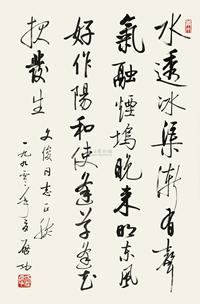 水遶冰渠漸有聲
氣融煙塢晚來明東風
好作陽和使逢草逢花
報發生
文俊同志正腕
一九九〇年夏啟功